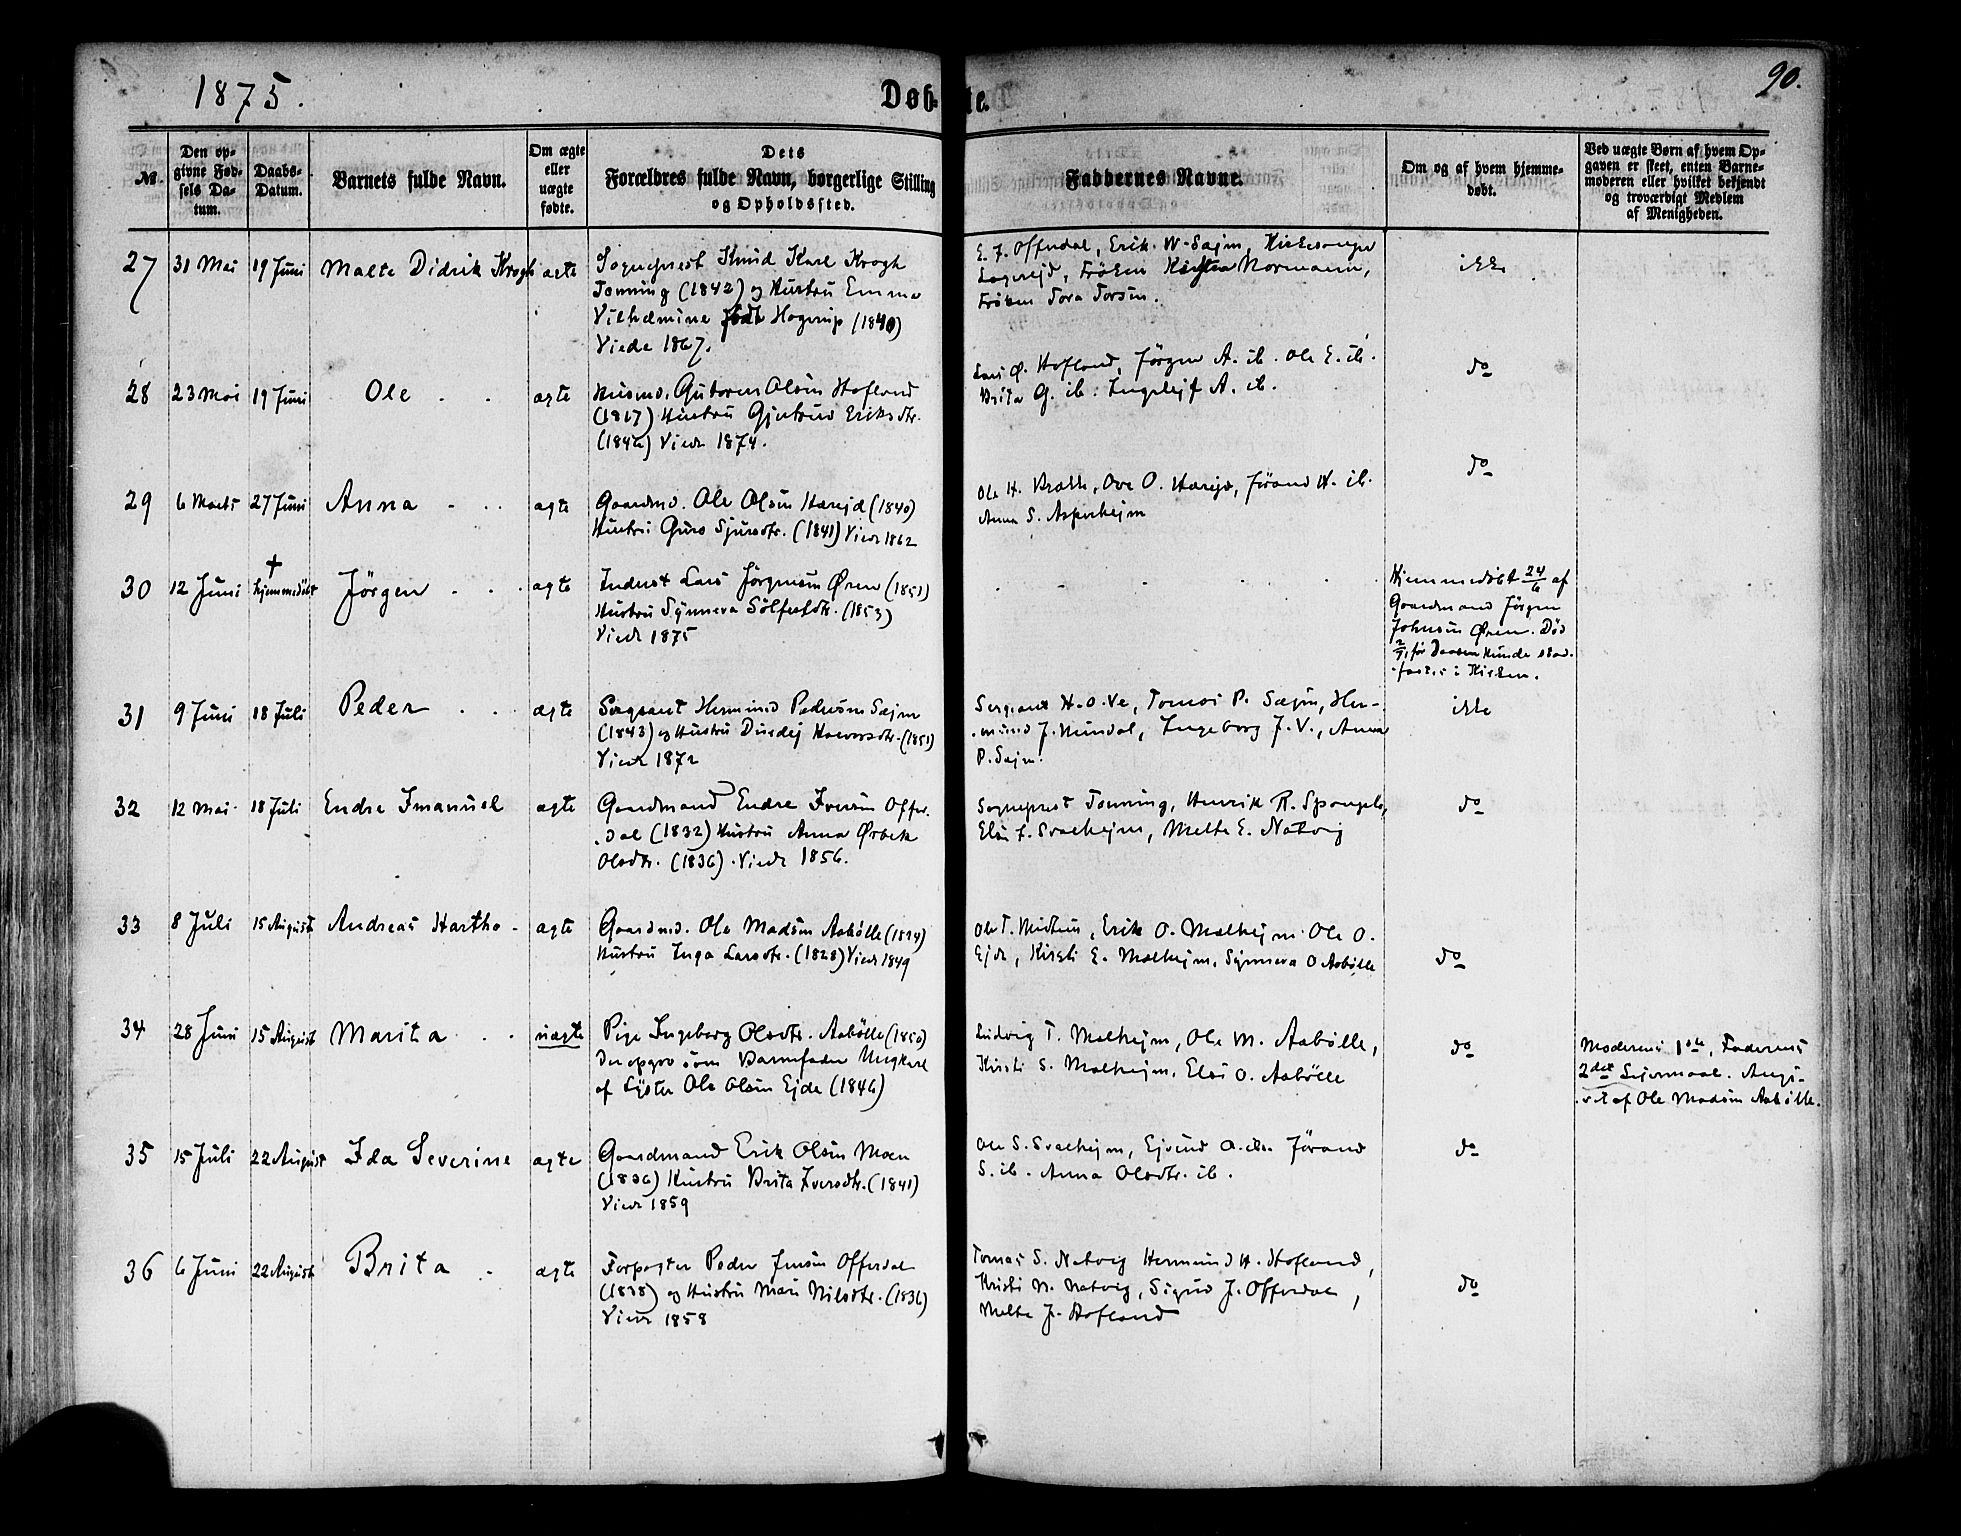 1875.
Døb-
te.
90.
№.
Den op-
givne Fød-
sels Da-
tum.
Daabs-
Datum.
Barnets fulde Navn.
Om ægte
eller
uægte
fødte.
Dets
Forældres fulde Navn, borgerlige Stilling
og Opholdssted.
Faddernes Navne.
Om og af hvem hjemme-
døbt.
Ved uægte Børn af hvem Op-
gaven er skeet, enten Barne-
moderen eller hvilket bekjendt
og troværdigt Medlem
af Menigheden.
27
31 Mai
19 Juni
Malte Didrik Krogh
ægte
Sogneprest Knud Karl Krogh
Tonning (1842) og Hustru Emma
Vilhelmine født Hagerup (1840)
Viede 1867.
E. J. Offerdal, Erik W. Sæjm, Kirkesanger
Frøken Normann,
Frøken Tora
ikke
28
23 Mai
19 Juni
Ole
ægte
Husmd. Guttorm Olsen Hofland
(1847) Hustru Gjertrud Eriksdtr.
(1846) Viede 1874.
Lars O. Hofland, Jørgen A. ib. Ole E. ib.
Brita G. ib. Ingeleif A. ib.
do
29
6 Marts
27 Juni
Anna
ægte
Gaardmd. Ole Olsen Hærejd (1840)
Hustru Guro Sjursdtr. (1841) Viede 1862
Ole H. Ove O. Hærejd, Jørand H. ib.
Anna S. Asperhejm
do
30
12 Juni
†
hjemmedøbt
Jørgen
ægte
Inderst Lars Jørgensen Øren (1851)
Hustru Synneva Sølfestdtr. (1853)
Viede 1875
Hjemmedøbt 24/6 af
Gaardmand Jørgen
Johnsen Øren. Død
2/7, før Daaben kunde stad-
fæstes i Kirken.
31
9 Juni
18 Juli
Peder
ægte
Sergeant Hermund Pedersen Sæjm
(1843) og Hustru Durdej Haavarsdtr. (1851)
Viede 1872
Sergeant H. O. Ve, Tomas P. Sæjm, Her-
mund J. Mundal, Ingeborg J. V., Anna
P. Sæjm.
ikke
32
12 Mai
18 Juli
Endre Imanuel
ægte
Gaardmand Endre Iversen Offer-
dal (1832) Hustru Anna Ørbek
Olsdtr. (1836). Viede 1856.
Sogneprest Tonning, Henrik R.
Elsi J. Svalhejm, Malte E. Natvig
do
33
8 Juli
15 August
Andreas Hartho
ægte
Gaardmd. Ole Madsen Aabølle
Hustru Inga Larsdtr. (1828) Viede 1849
Ole T. Erik O. Molhejm. Ole O.
Ejde, Kirsti E. Molhejm, Synneva O Aabølle
do
34
28 Juni
15 August
Marita
uægte
Pige Ingeborg Olsdtr. Aabølle (1850)
Der opgav som Barnefader Ungkarl
af Lyster Ole Olsen Ejde (1846)
Ludvig T. Molhejm, Ole M. Aabølle,
Kirsti S. Molhejm, Elsi O. Aabølle
do
Moderens 1ste, Faderens
2det Lejermaal. Angi-
vet af Ole Madsen Aabølle.
35
15 Juli
22 August
Ida Severine
ægte
Gaardmand Erik Olsen Moen
(1836) Hustru Brita Iversdtr. (1841)
Viede 1859
Ole S. Svalhejm, Ejvind O. ib. Jørand
S. ib. Anna Olsdtr. ib.
do
36
6 Juni
22 August
Brita
ægte
Forpagter Peder Jensen Offerdal
(1838) og Hustru Mari Nilsdtr. (1836)
Viede 1858
Tomas S. Natvig Hermund H. Hofland,
Kristi N. Natvig, Sigrid J. Offerdal,
Malte J. Hofland
do